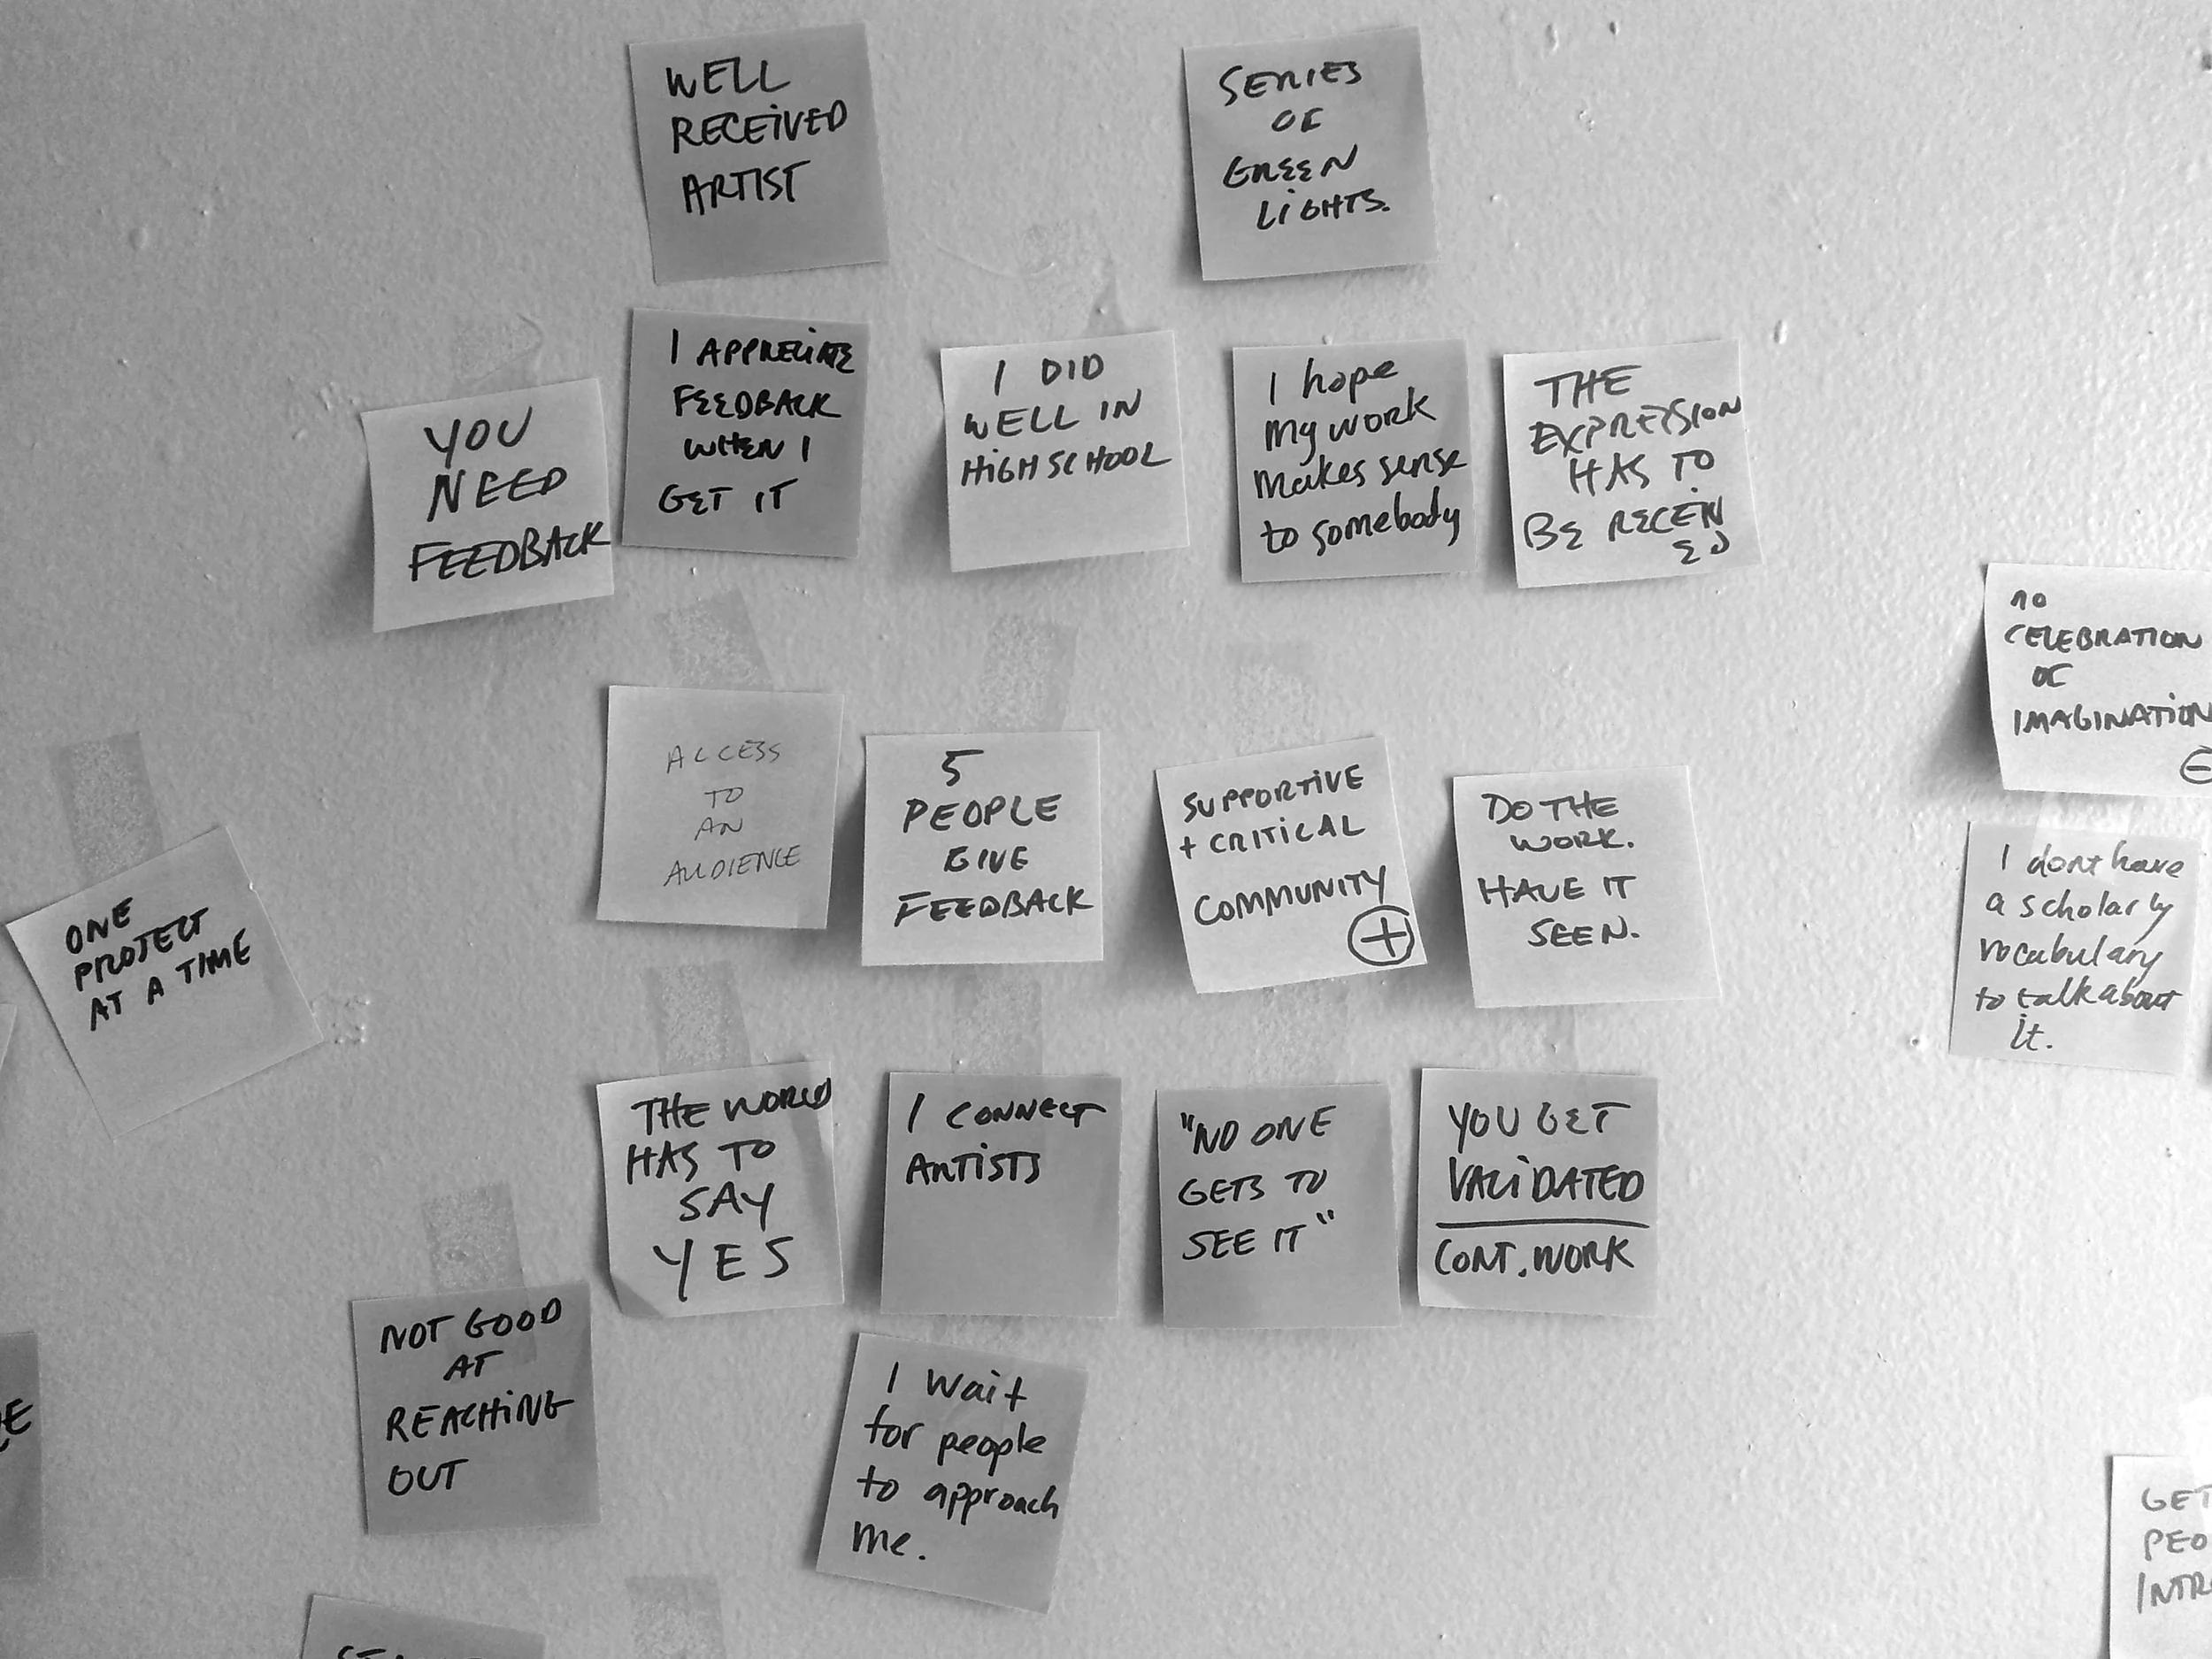 WELL
RECEIVED
ARTIST
SERIES
OF
GREEN
LIGHTS.
YOU
NEED
FEEDBACK
I APPRECIATE
FEEDBACK
WHEN I
GET IT
I DID
WELL IN
HIGH SCHOOL
I hope
my work
makes sense
to somebody
THE
EXPRESSION
HAS TO
BE RECEIV
ED
no
CELEBRATION
OF
IMAGINATION
ACCESS
TO
AN
AUDIENCE
5
PEOPLE
GIVE
FEEDBACK
SUPPORTIVE
+ CRITICAL
COMMUNITY
+
DO THE
WORK.
HAVE IT
SEEN.
I dont have
a scholarly
vocabulary
to talk about
it.
ONE
PROJECT
AT A TIME
THE WORLD
HAS TO
SAY
YES
I CONNECT
ARTISTS
"NO ONE
GETS TO
SEE IT"
YOU GET
VALIDATED
CONT. WORK
NOT GOOD
AT
REACHING
OUT
I wait
for people
to approach
me.
GET
PEO
INTR